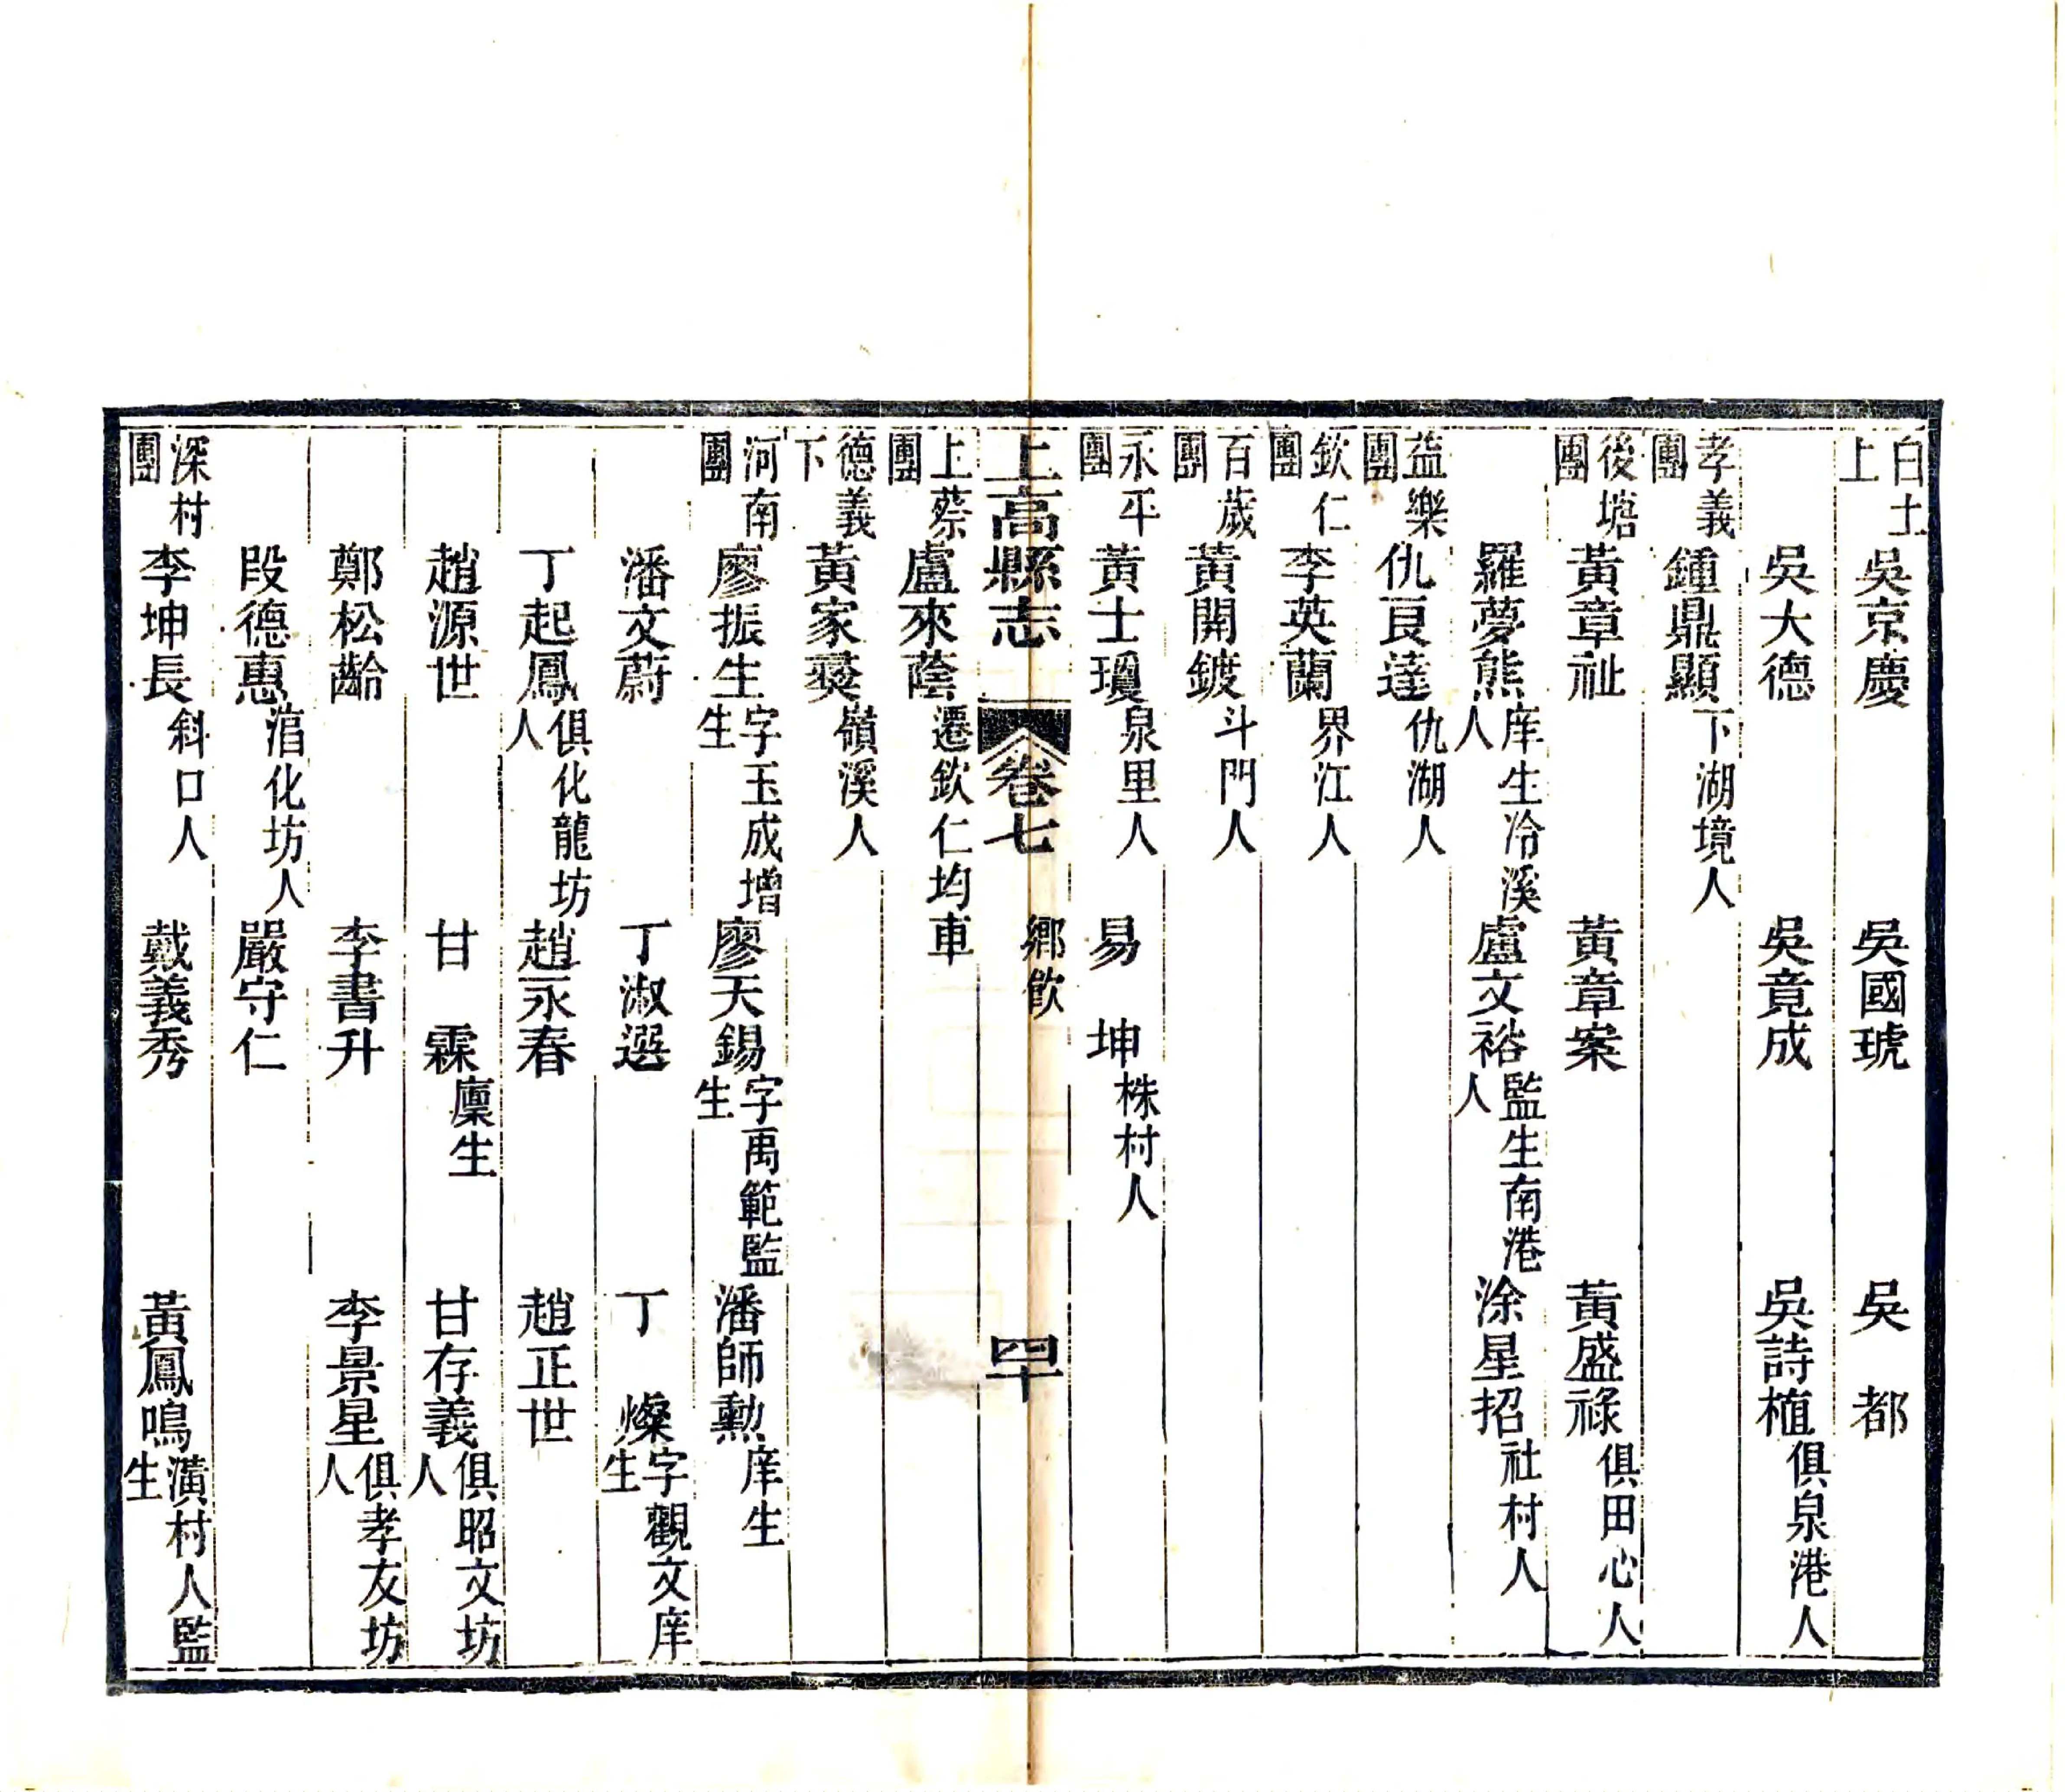 白土上 吳京慶 吳國琥 吳都
吳大德 吳竟成 吳詩植俱泉港人
孝義團 鍾鼎顯下湖境人
後塘團 黃章祉 黃章案 黃盛祿俱田心人
羅夢熊庠生冾溪人 盧文裕監生南港人 涂星招社村人
益樂團 仇良達仇湖人
欽仁團 李英蘭界江人
百歲團 黃開鍍斗門人
永平團 黃士瓊泉里人 易坤株村人
上高縣志 卷七 鄉飲 四十
上蔡團 盧來蔭遷欽仁均車
德義下 黃家燹嶺溪人
河南團 廖振生字玉成增生 廖天錫字禹範監生 潘師勲庠生
潘文蔚 丁淑選 丁燦字觀文庠生
丁起鳳俱化龍坊人 趙永春 趙正世
趙源世 甘霖廩生 甘存義俱昭文坊人
鄭松齡 李書升 李景星俱孝友坊人
段德惠涫化坊人 嚴守仁
深村團 李坤長斜口人 戴義秀 黃鳳鳴潢村人監生